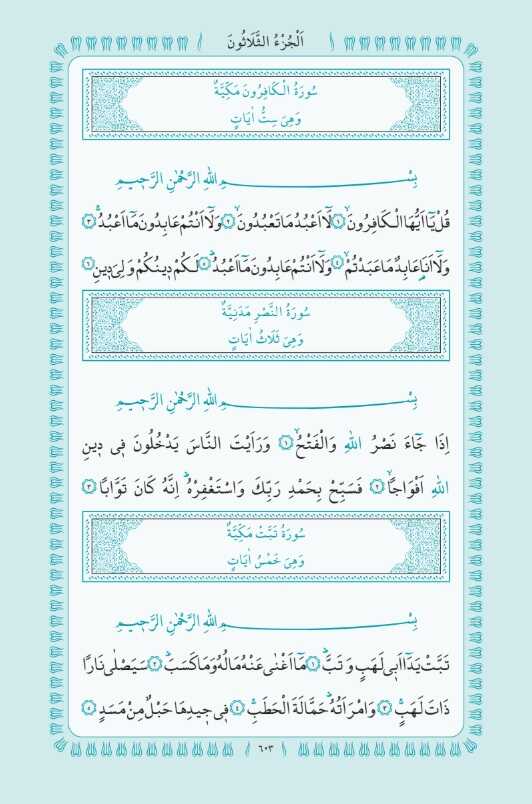 اَلْجُزْءُ الثَّلَاثُونَ
سُورَةُ الْكَافِرُونَ مَكِّيَّةٌ
وَهِيَ سِتُّ اٰيَاتٍ
بِسْمِ اللهِ الرَّحْمٰنِ الرَّحِيمِ
قُلْ يَٓا اَيُّهَا الْكَافِرُونَۙ ﴿١﴾ لَٓا اَعْبُدُ مَا تَعْبُدُونَۙ ﴿٢﴾ وَلَٓا اَنْتُمْ عَابِدُونَ مَٓا اَعْبُدُۚ ﴿٣﴾
وَلَٓا اَنَا۬ عَابِدٌ مَا عَبَدْتُمْۙ ﴿٤﴾ وَلَٓا اَنْتُمْ عَابِدُونَ مَٓا اَعْبُدُۜ ﴿٥﴾ لَكُمْ دِينُكُمْ وَلِيَ دِينِ ﴿٦﴾
سُورَةُ النَّصْرِ مَدَنِيَّةٌ
وَهِيَ ثَلَاثُ اٰيَاتٍ
بِسْمِ اللهِ الرَّحْمٰنِ الرَّحِيمِ
اِذَا جَٓاءَ نَصْرُ اللهِ وَالْفَتْحُۙ ﴿١﴾ وَرَاَيْتَ النَّاسَ يَدْخُلُونَ فِي دِينِ
اللهِ اَفْوَاجًاۙ ﴿٢﴾ فَسَبِّحْ بِحَمْدِ رَبِّكَ وَاسْتَغْفِرْهُۜ اِنَّهُ كَانَ تَوَّابًا ﴿٣﴾
سُورَةُ تَبَّتْ مَكِّيَّةٌ
وَهِيَ خَمْسُ اٰيَاتٍ
بِسْمِ اللهِ الرَّحْمٰنِ الرَّحِيمِ
تَبَّتْ يَدَٓا اَبِي لَهَبٍ وَتَبَّۜ ﴿١﴾ مَٓا اَغْنٰى عَنْهُ مَالُهُ وَمَا كَسَبَۜ ﴿٢﴾ سَيَصْلٰى نَارًا
ذَاتَ لَهَبٍۚ ﴿٣﴾ وَامْرَاَتُهُۜ حَمَّالَةَ الْحَطَبِۚ ﴿٤﴾ فِي جِيدِهَا حَبْلٌ مِنْ مَسَدٍ ﴿٥﴾
٦٠٣